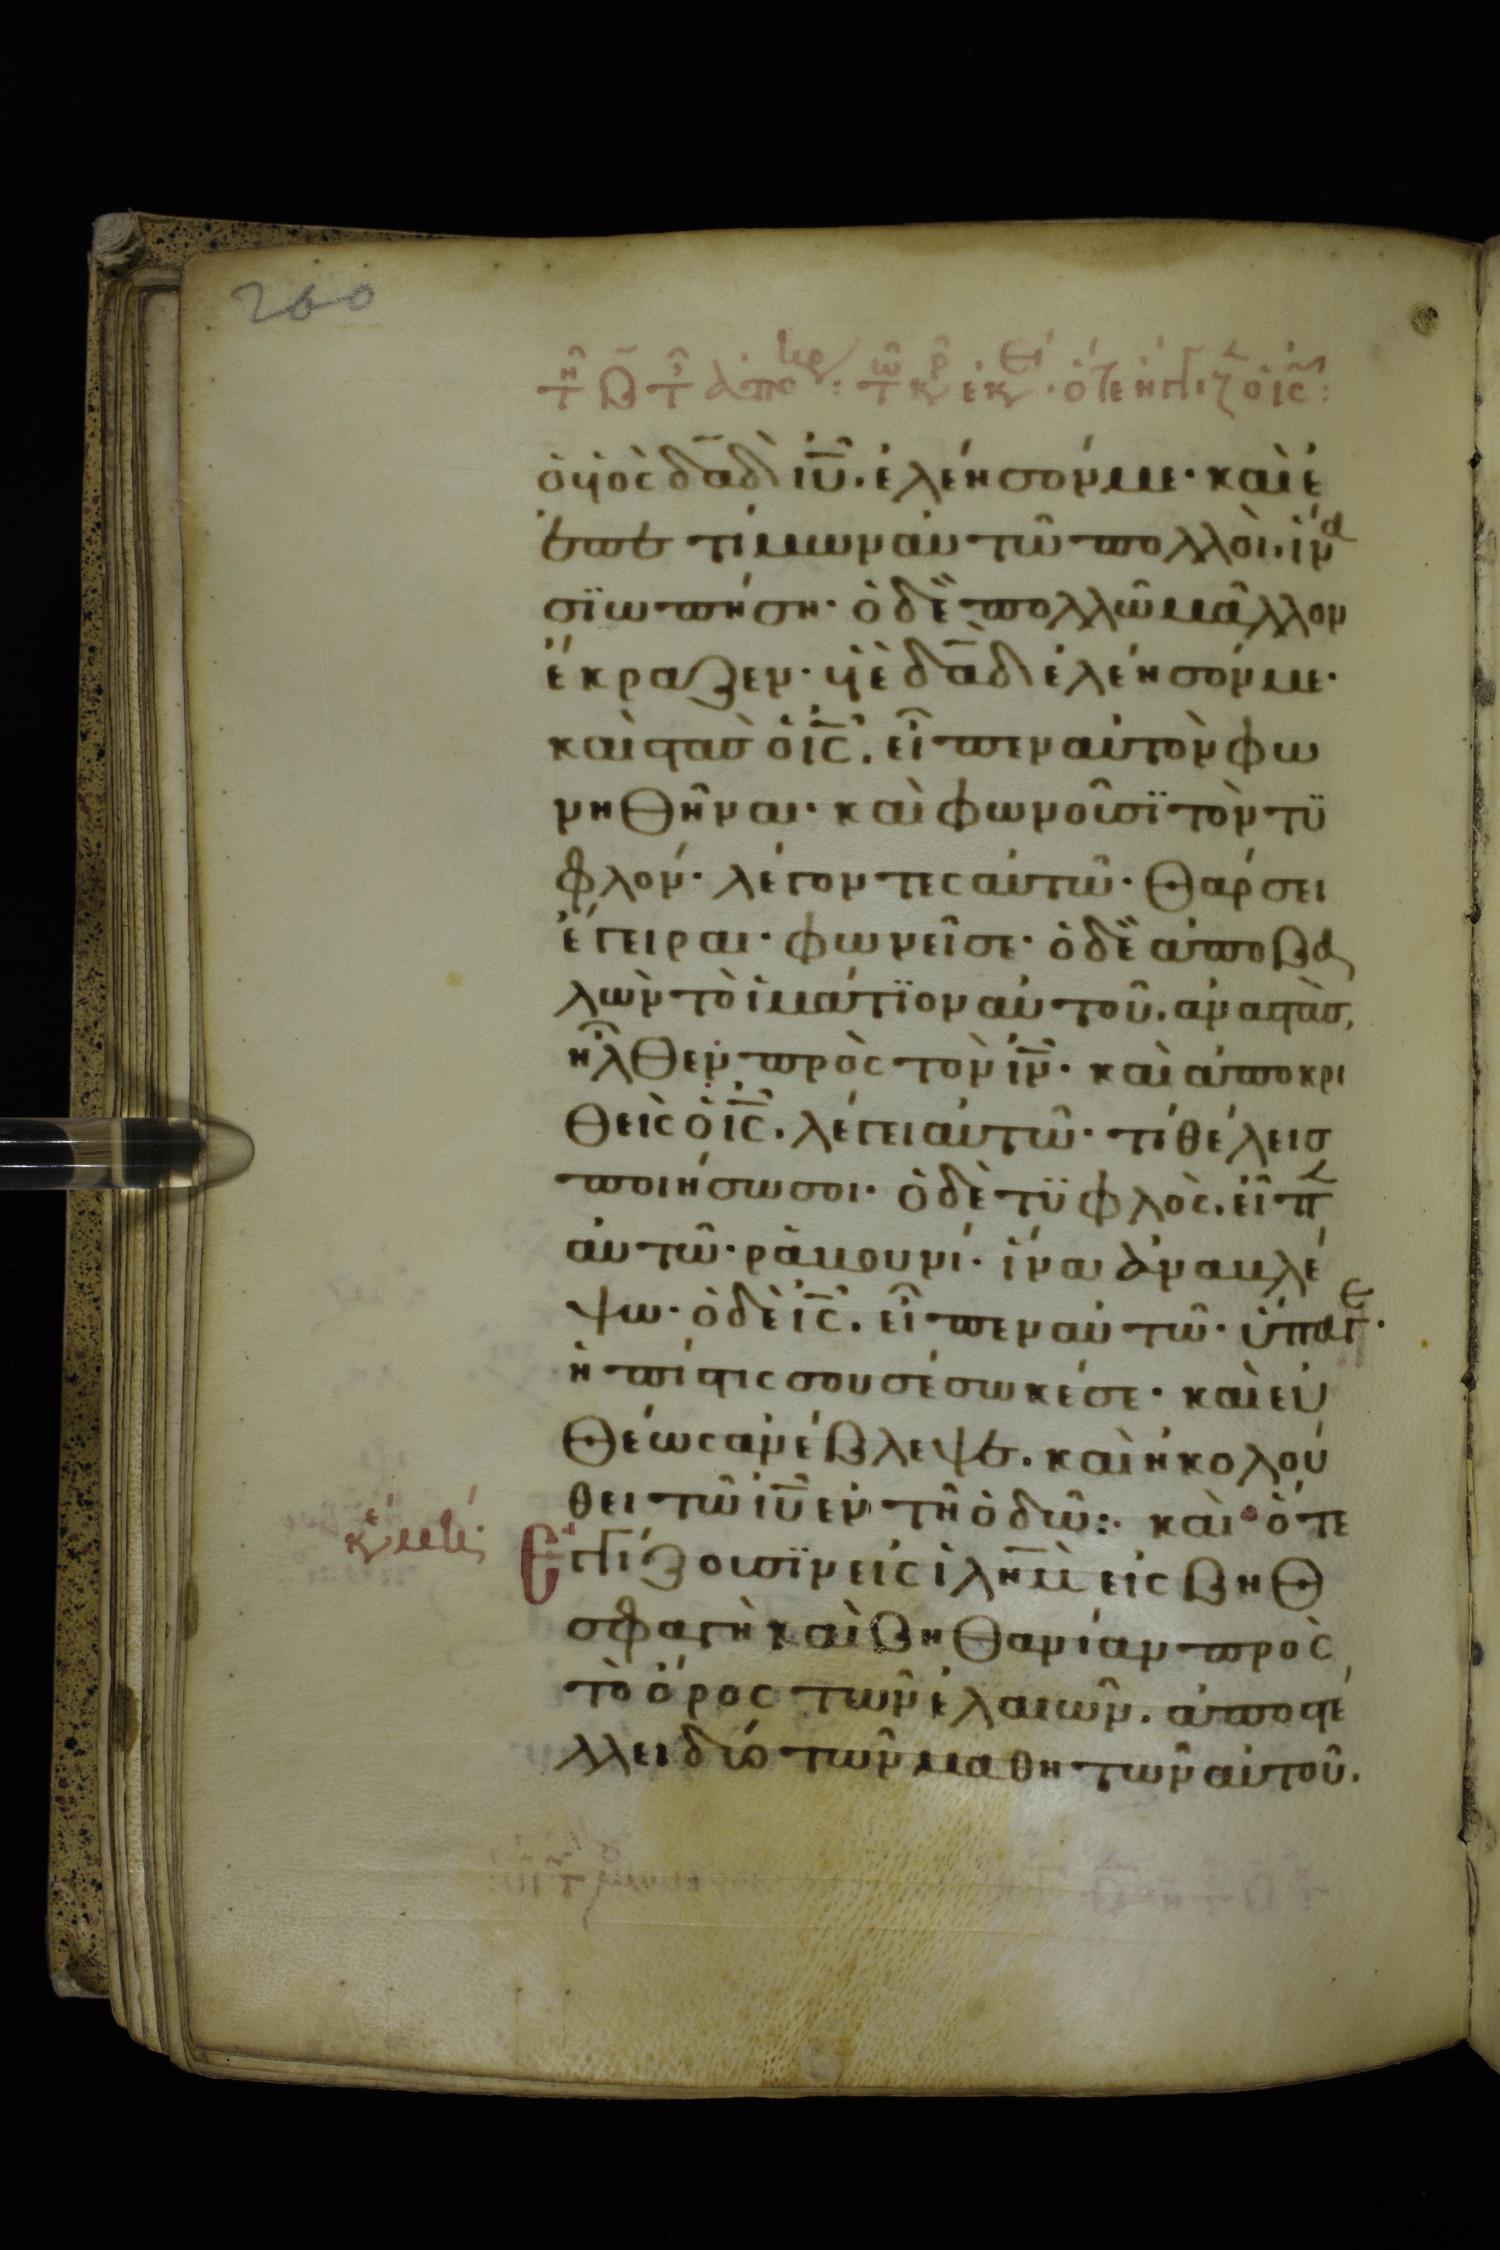 260
τῆ Β τῆς ἀπο
ὁ υἱὸς δᾱδ ιῡ. ἐλέησόν με· καὶ ἐ
πετίμων αὐτῶ πολλοὶ. ἵνα
σϊωπήση· ὁ δὲ πολλῶ μᾶλλον
ἔκραζεν· υἱὲ δᾱδ ἐλέησόν με·
καὶ στὰσ ὁ ις̄. εἶπεν αὐτὸν φω
νηθῆναι· καὶ φωνοῦσϊ τὸν τϋ
φλόν· λέγοντες αὐτῶ· θάρσει
ἔγειραι· φωνεῖ σε· ὁ δὲ ἀποβα
λὼν τὸ ἱμάτϊον αὐτοῦ. ἀναστὰσ,
ἦλθεν πρὸς τὸν ιν̄· καὶ ἀποκρι
θεὶς ὁ ις̄. λέγει αὐτῶ· τί θέλεισ
ποιήσω σοι· ὁ δὲ τϋφλὸς. εἶπ
αὐτῶ· ραβουνί· ἵνα ἀναβλέ
ψω· ὁ δὲ ις̄. εἶπεν αὐτῶ· ὕπαγε·
ἡ πίστις σου σέσωκέ σε· καὶ εὐ
θέως ἀνέβλεψε. καὶ ἠκολού
θει τῶ ιῡ ἐν τῆ ὁδῶ:· καὶ ὅτε
Ἐγγίζουσϊν εἰς ἱλη̄μ εἰς βηθ
σφαγὴ καὶ βηθανίαν πρὸς
τὸ ὄρος τῶν ἐλαιῶν. ἀποστέ
λλει δύο τῶν μαθητῶν αὐτοῦ.